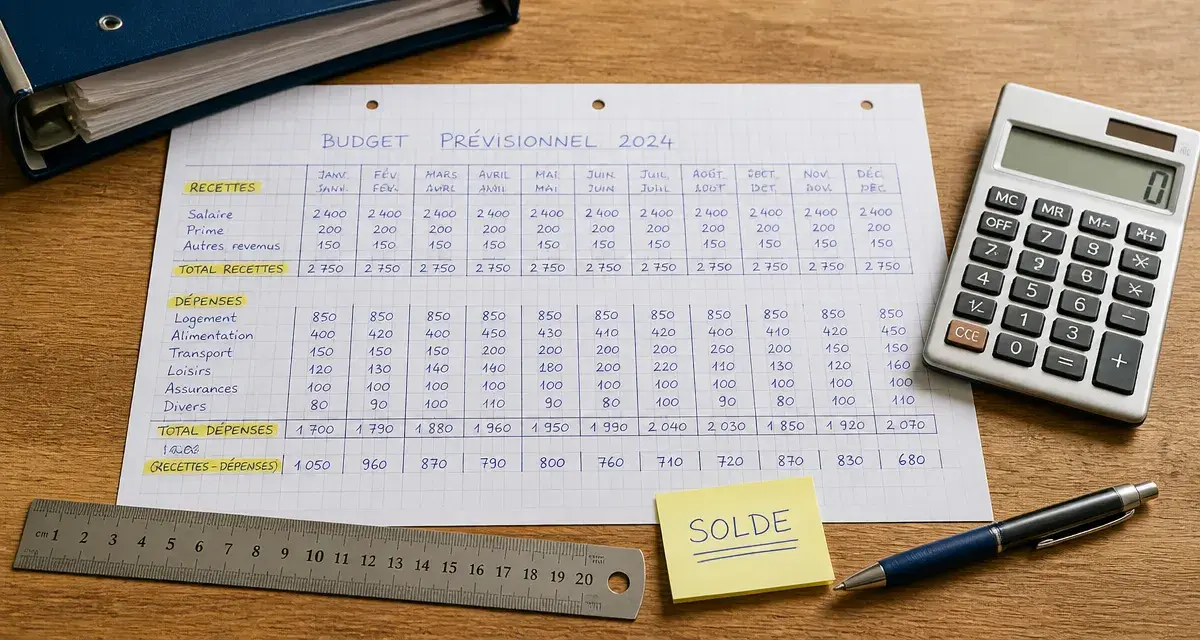 BUDGET PRÉVISIONNEL 2024
RECETTES JANV. FÉV. MARS AVRIL MAI JUIN JUIL. AOÛT SEPT. NOV. DÉC.
FÉV. AVRIL AVRIL MAI JUIN JUIL AOUT OCT. NOV. DÉC.
Salaire 2 400 2 400 2 400 2 400 2 400 2 400 2 400 2 400 2 400 2 400 2 400
Prime 200 200 200 200 200 200 200 200 200 200 200
Autres revenus 150 150 150 150 150 150 150 150 150 150 150
TOTAL RECETTES 2 750 2 750 2 750 2 750 2 750 2 750 2 750 2 750 2 750 2 750 2 750
DÉPENSES
Logement 850 850 850 850 850 850 850 850 850 850 850
Alimentation 400 420 400 450 430 410 420 400 410 420 450
Transport 150 150 150 200 200 200 200 260 200 150 150
Loisirs 120 130 140 140 180 200 220 110 130 120 160
Assurances 100 100 100 100 100 100 100 100 100 100 100
Divers 80 90 100 110 90 80 100 90 80 100 110
TOTAL DÉPENSES 1 700 1 790 1 880 1 960 1 950 1 990 2 040 2 030 1 850 1 920 2 070
(RECETTES-DÉPENSES) 1 050 960 870 790 800 760 710 720 870 830 680
SOLDE
cm 1 2 3 4 5 6 7 8 9 10 11 12 13 14 15 16 17 18 19 20
0
MC MR M- M+
OFF 7 8 ×
7 9 6 ×
4 5 6 ÷
1 3
CCE 0 = +